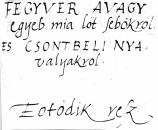 FEGYVER AVAGY
egyéb mia lött sebökröl.
ES CSONTBELI NYA-
valyakrol.
Eotödik rez.